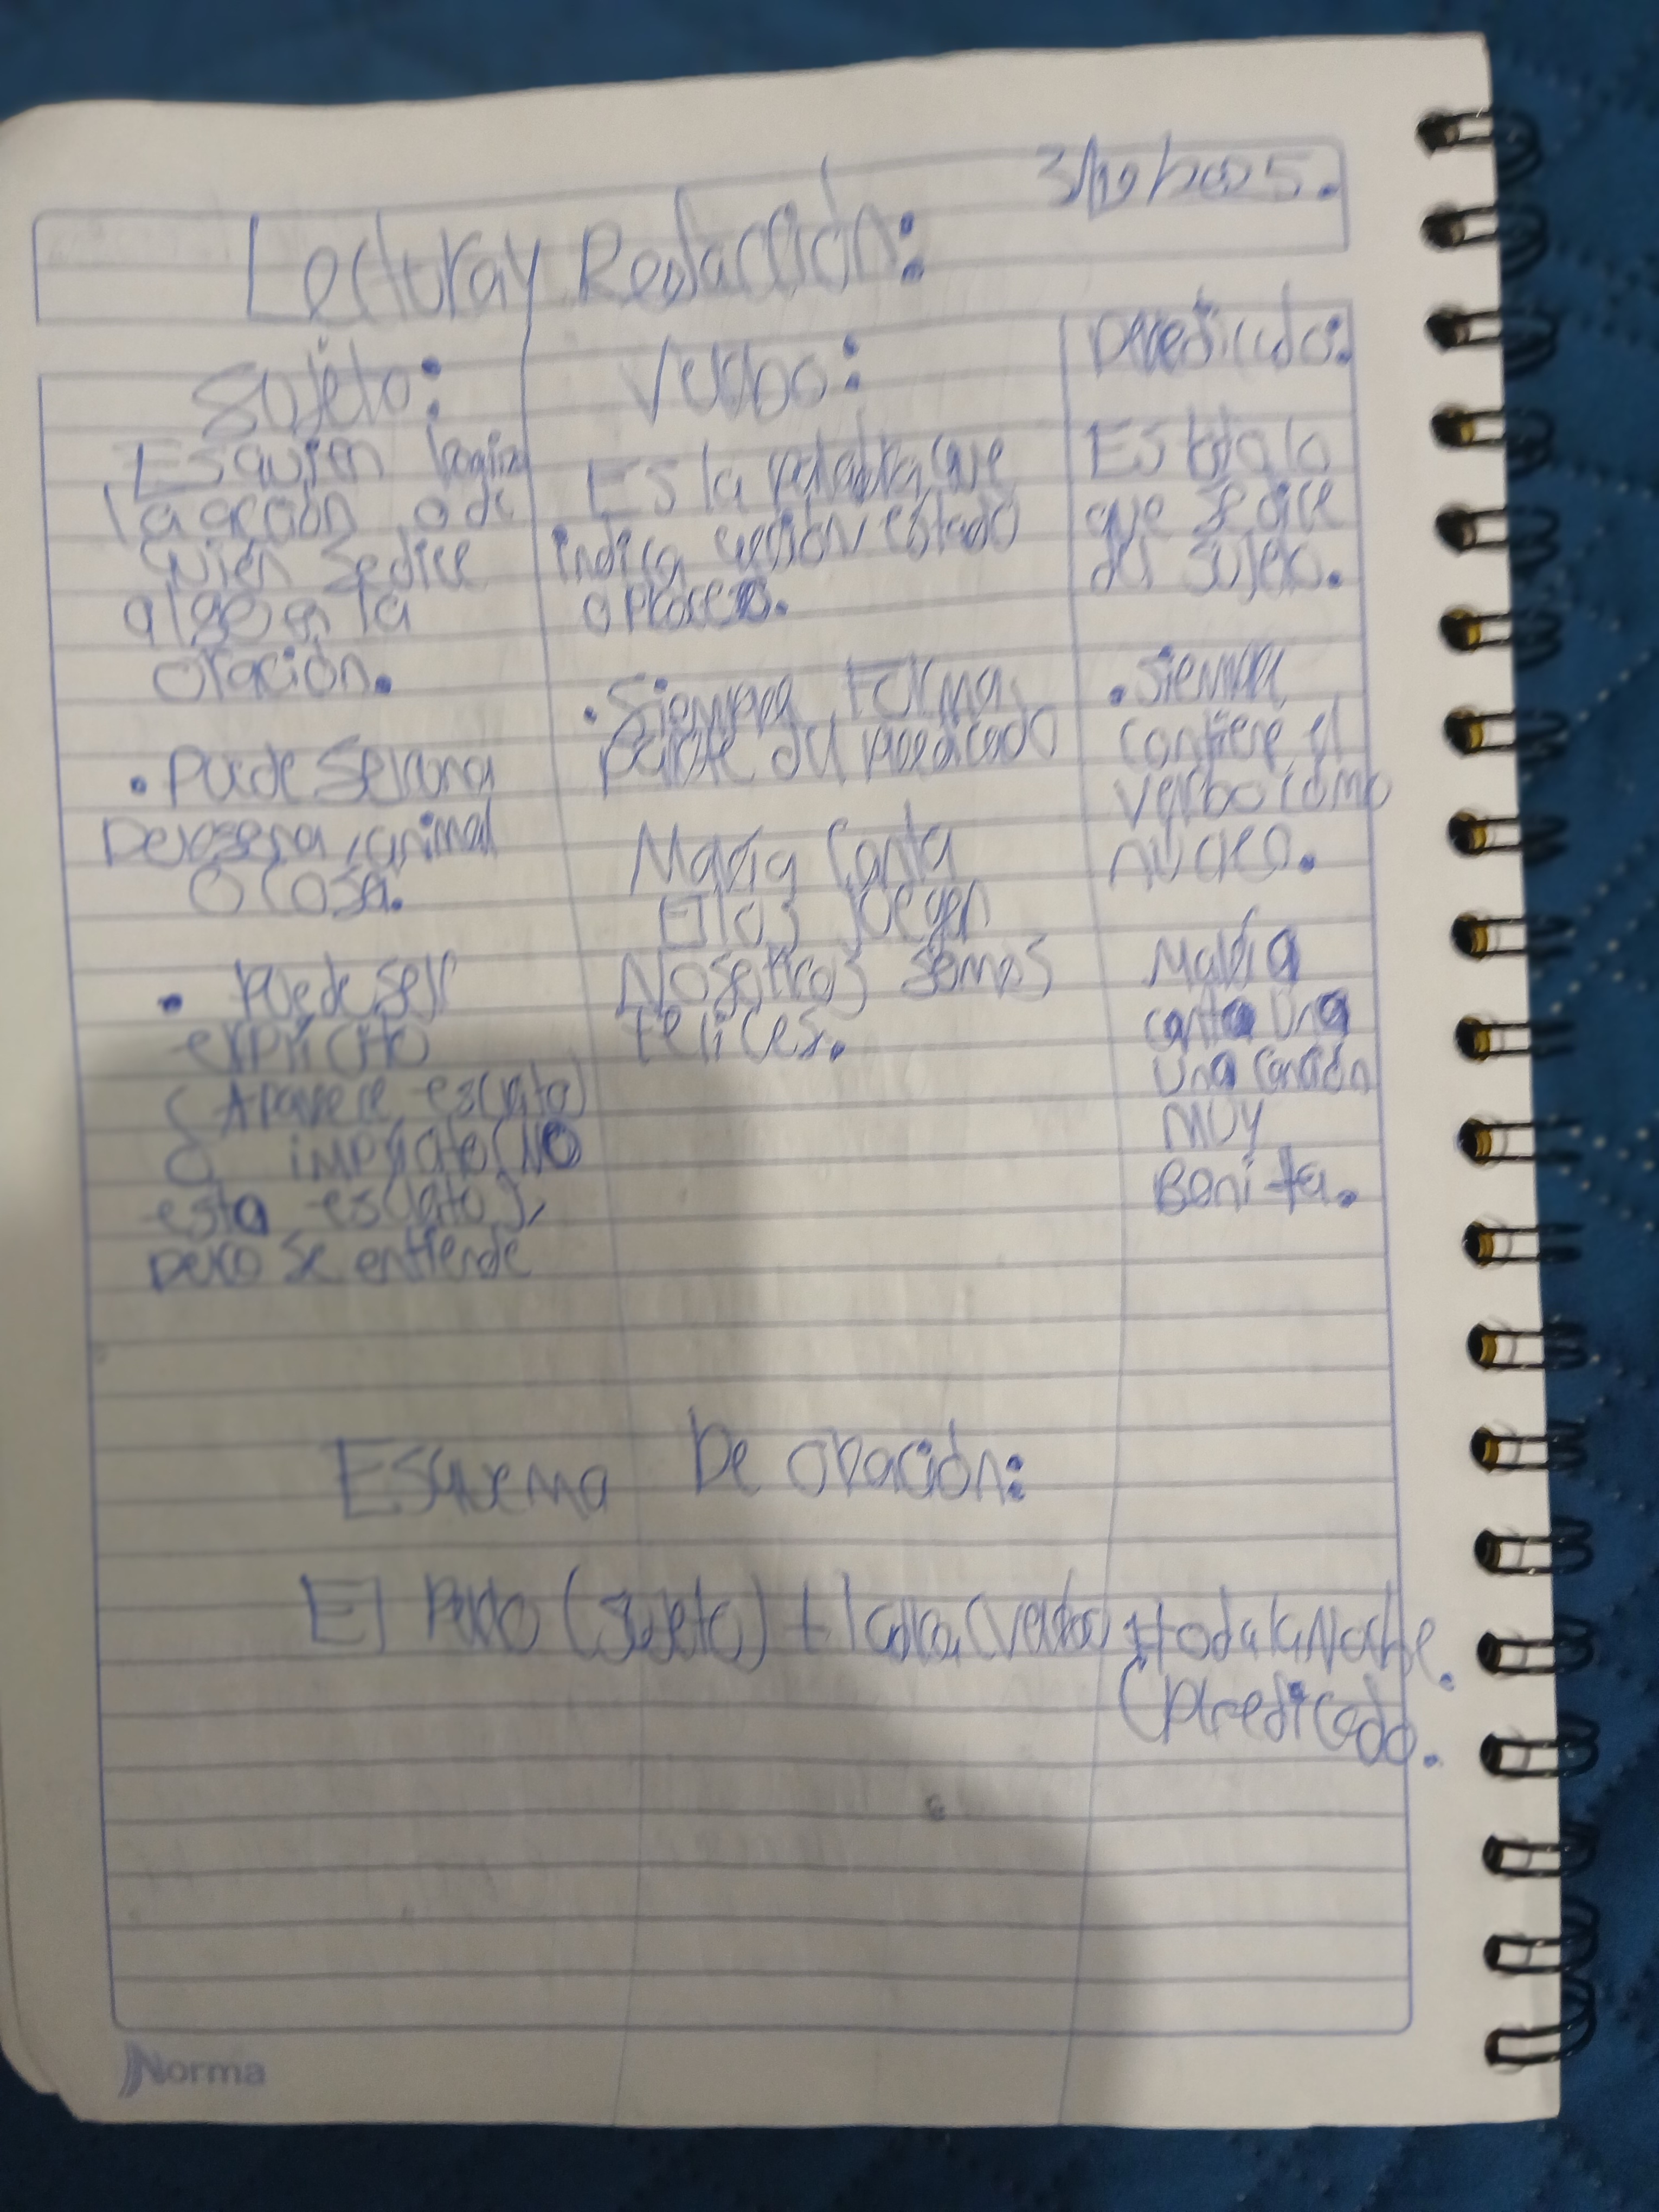 3/10/2025.
Lectura y Redacción:
Sujeto:
Es quien
la acción o de
quien se dice
algo en la
oración.
• Puede ser una
Persona, animal
O cosa.
• Puede ser
explícito
(Aparece escrito)
O implícito (NO
esta escrito),
pero se entiende
Verbo:
Es la palabra que
indica acción, estado
o proceso.
• Siempre Forma
parte del predicado
María Canta
Ellos juegan
Nosotros somos
felices.
Predicado:
Es todo lo
que se dice
del sujeto.
• Siempre
contiene el
verbo como
núcleo.
María
canta Una
Una canción
MUY
Bonita.
Esquema De oración:
El Perro (sujeto) + ladra (verbo) + toda la Noche.
(Predicado.
Norma